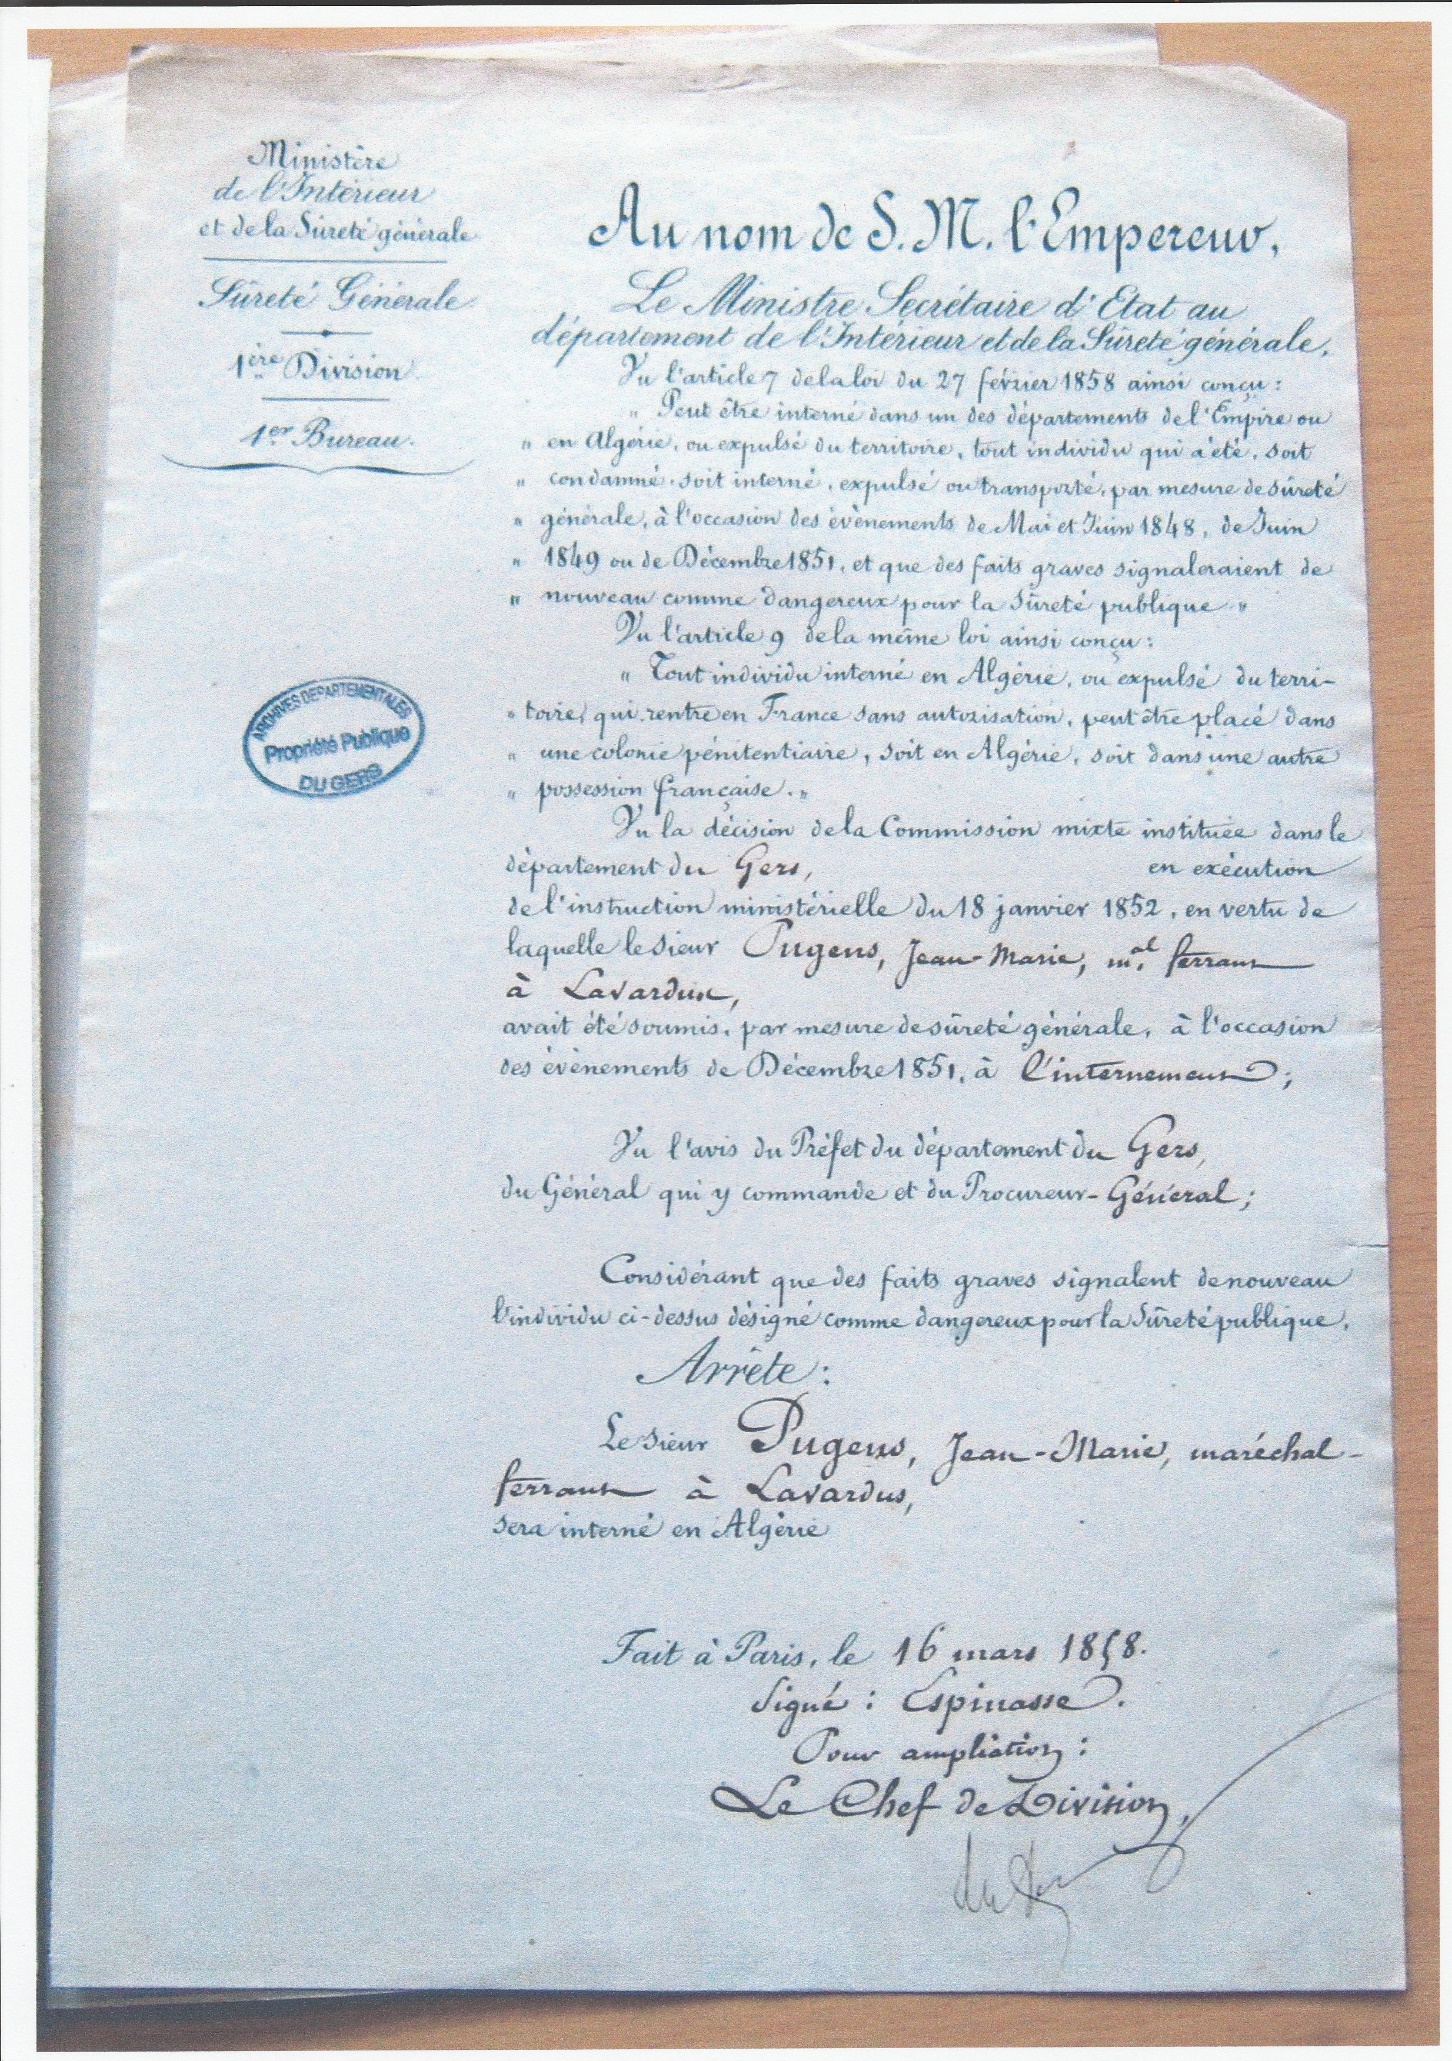 Ministère
de l'Intérieur
et de la Sûreté générale
Sûreté Générale
1ère Division.
1er Bureau.
ARCHIVES DEPARTEMENTALES
Propriété Publique
DU GERS
Au nom de S. M. l'Empereur,
Le Ministre Secrétaire d'Etat au
département de l'Intérieur et de la Sûreté générale,
Vu l'article 7 de la loi du 27 février 1858 ainsi conçu :
" Peut être interné dans un des départements de l'Empire ou
" en Algérie, ou expulsé du territoire, tout individu qui a été, soit
" condamné, soit interné, expulsé ou transporté, par mesure de sûreté
" générale, à l'occasion des évènements de Mai et Juin 1848, de Juin
" 1849 ou de Décembre 1851, et que des faits graves signaleraient de
" nouveau comme dangereux pour la Sûreté publique "
Vu l'article 9 de la même loi ainsi conçu :
" Tout individu interné en Algérie, ou expulsé du terri-
" toire, qui rentre en France sans autorisation, peut être placé dans
" une colonie pénitentiaire, soit en Algérie, soit dans une autre
" possession française. "
Vu la décision de la Commission mixte instituée dans le
département du Gers, en exécution
de l'instruction ministérielle du 18 janvier 1852, en vertu de
laquelle le sieur Pugens, Jean-Marie, m.al ferrant
à Lavardus,
avait été soumis, par mesure de sûreté générale, à l'occasion
des évènements de Décembre 1851, à l'internement ;
Vu l'avis du Préfet du département du Gers,
du Général qui y commande et du Procureur-Général ;
Considérant que des faits graves signalent de nouveau
l'individu ci-dessus désigné comme dangereux pour la Sûreté publique,
Arrête :
Le sieur Pugens, Jean-Marie, maréchal-
ferrant à Lavardus,
sera interné en Algérie
Fait à Paris, le 16 mars 1858.
Signé : Espinasse.
Pour ampliation :
Le Chef de Division,